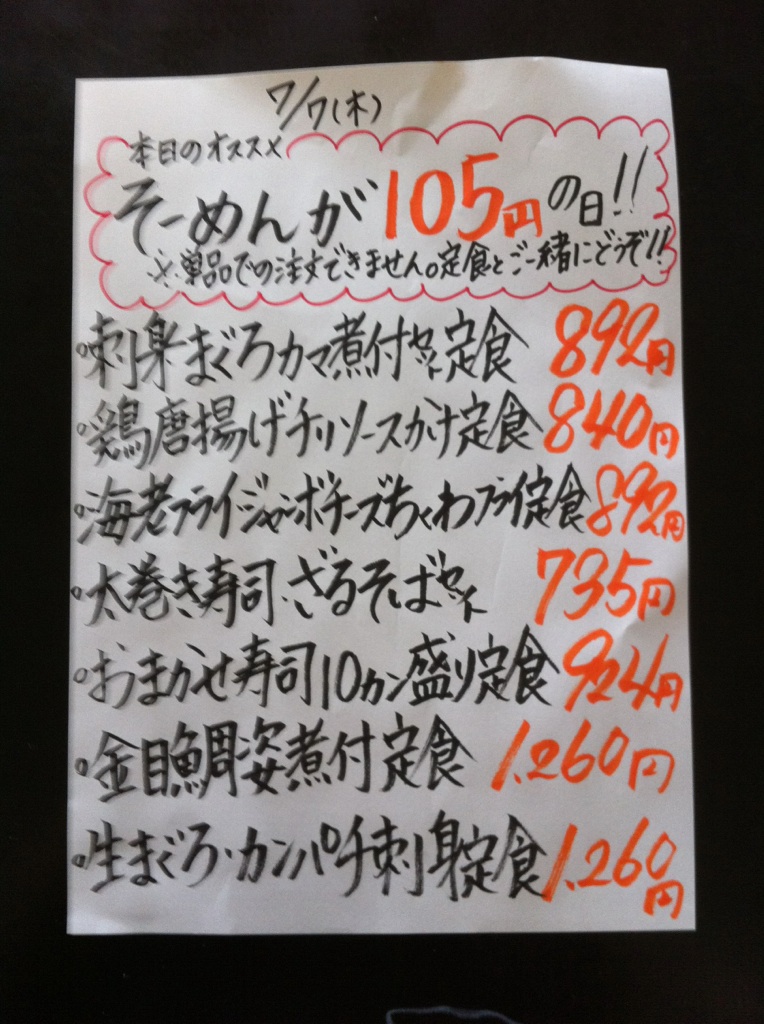 7/7(木)
本日のオススメ
そーめんが105円の日!!
※単品での注文できません。定食とご一緒にどうぞ!!
・刺身まぐろカマ煮付セット定食 892円
・鶏唐揚げチリソースがけ定食 840円
・海老フライジャンボチーズちくわフライ定食 892円
・太巻き寿司・ざるそばセット 735円
・おまかせ寿司10カン盛り定食 924円
・金目鯛姿煮付定食 1,260円
・生まぐろ・カンパチ刺身定食 1,260円